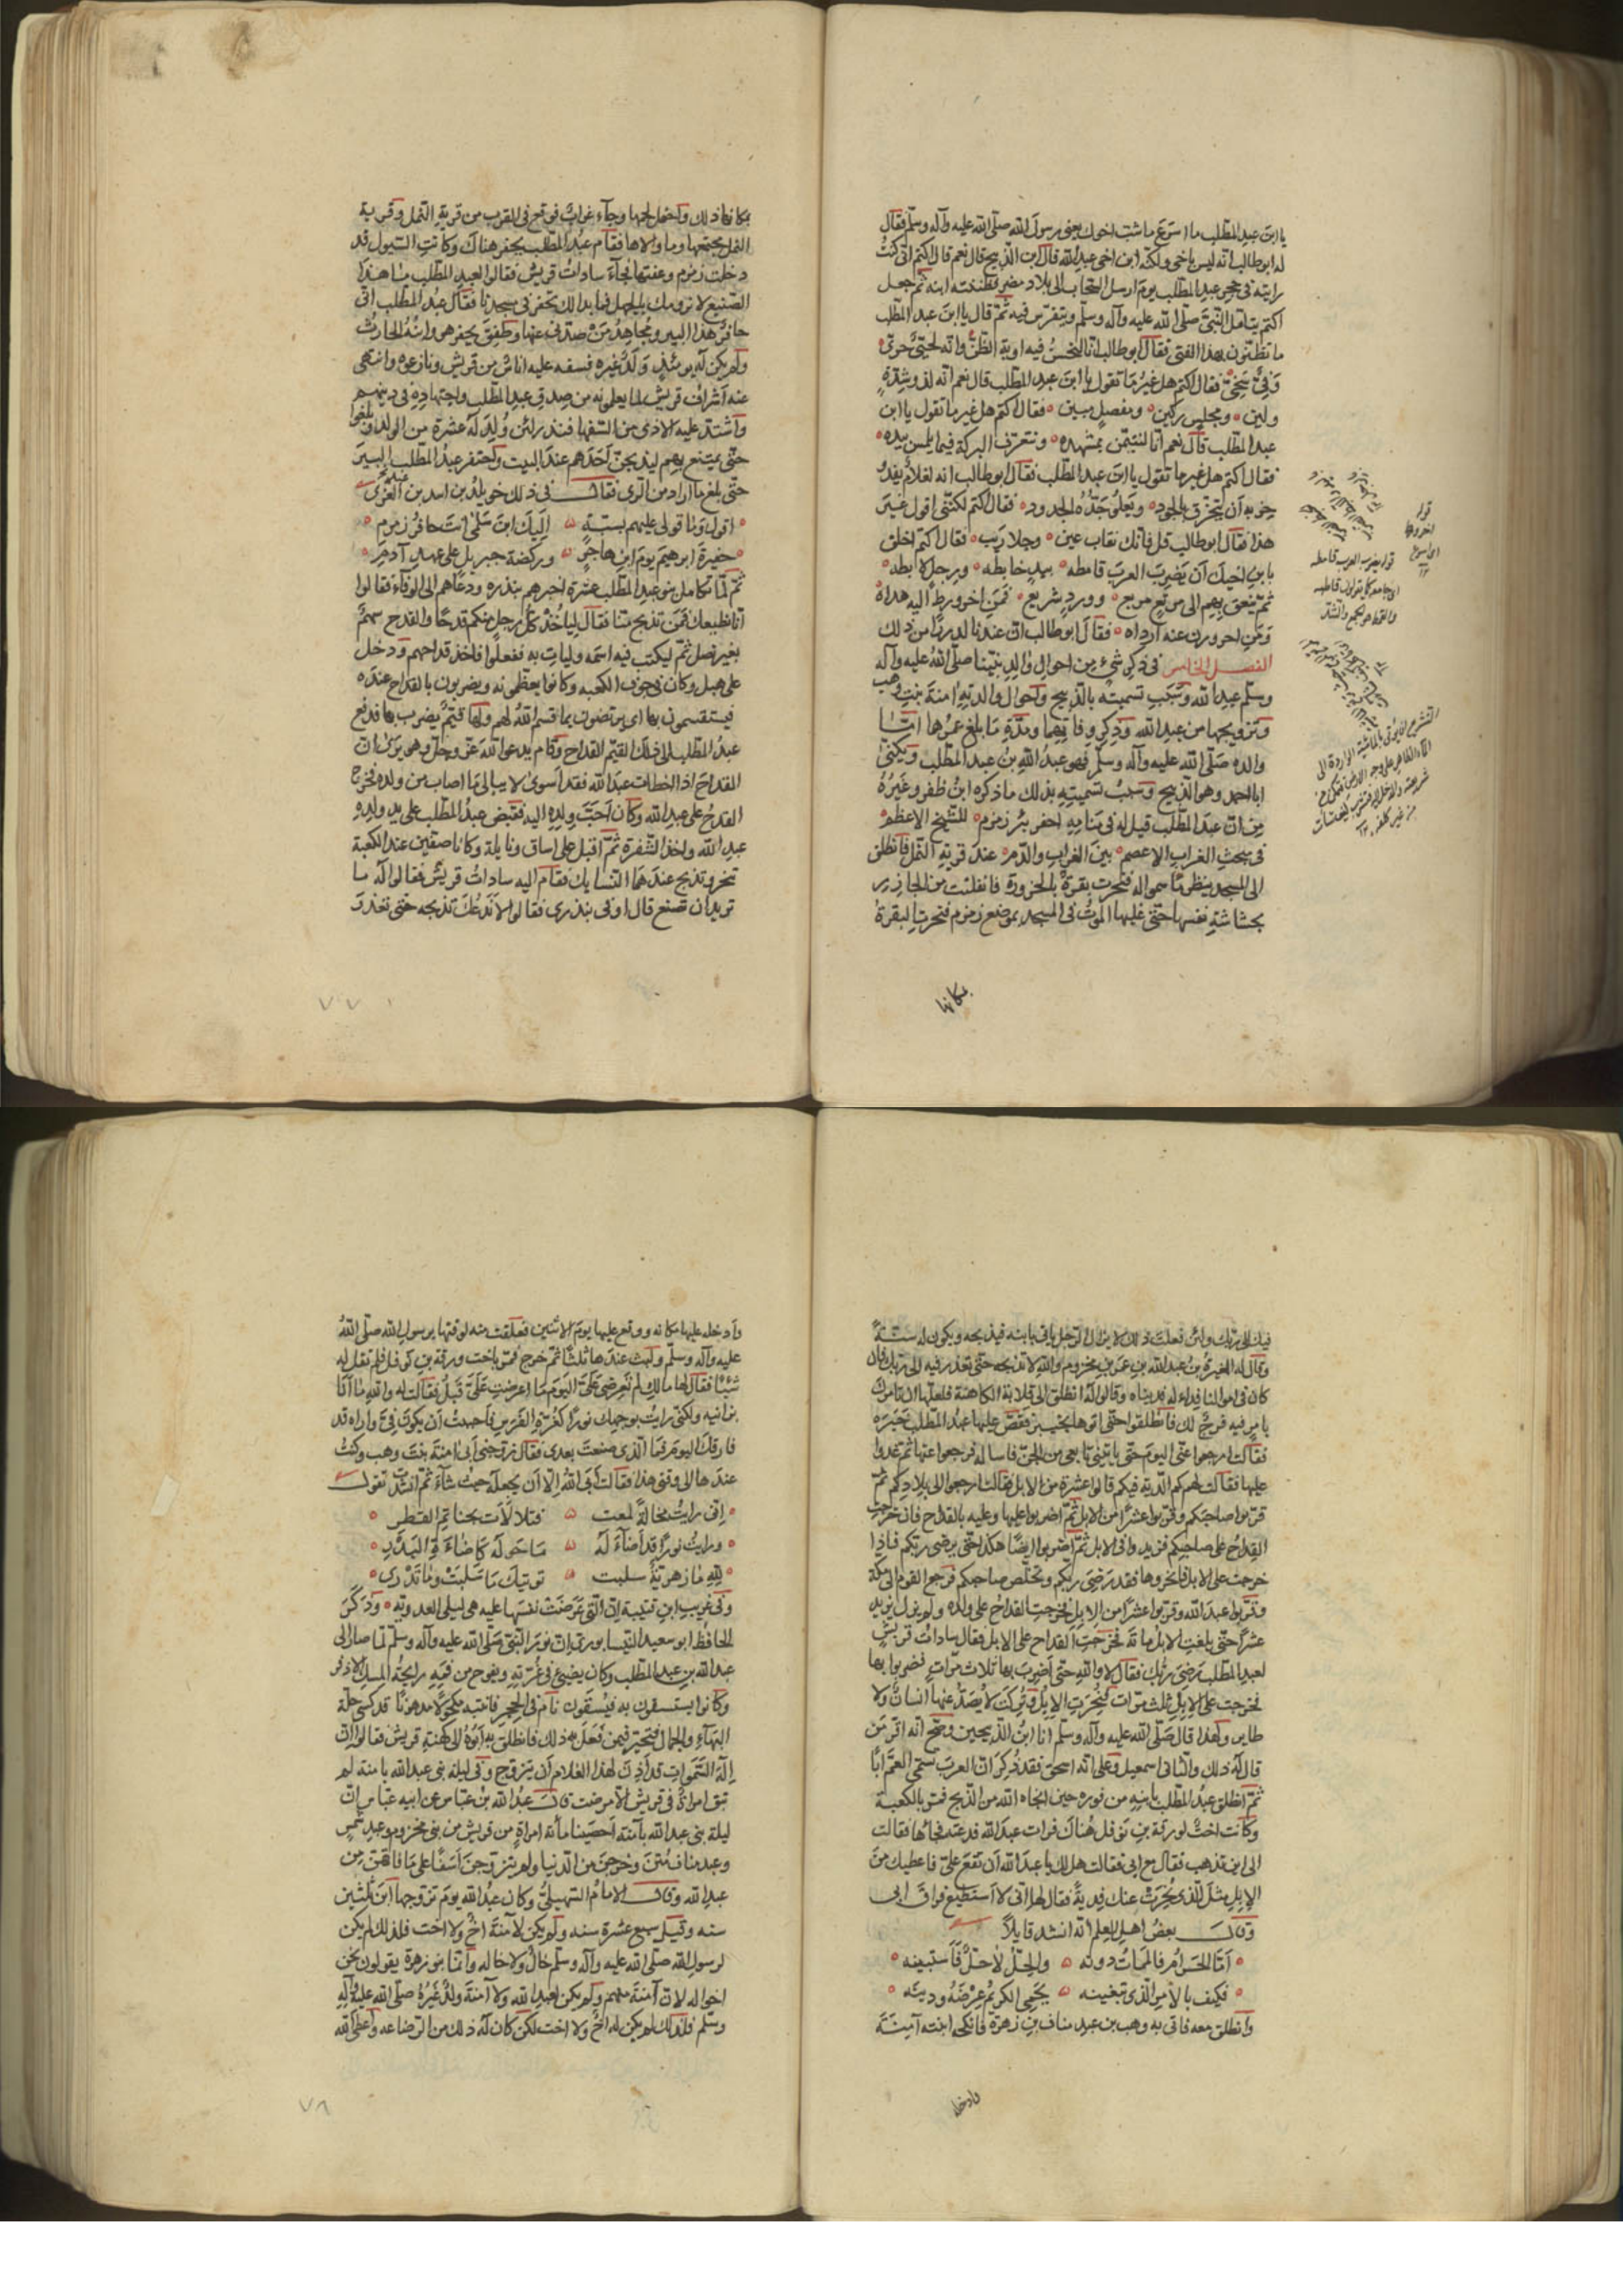 يا ابن عبد المطلب ما اسرع ما شب اخوك يعني رسول الله صلى الله عليه وآله وسلم فقال
له ابو طالب انه ليس باخي ولكنه ابن اخي عبد الله قال ابن الذبيح قال نعم قال اكثم اني كنت
رايته في حجر عبد المطلب يوم ارسل السحاب الى بلاد مضر فظننته ابنه ثم جعل
اكثم يتامل النبي صلى الله عليه وآله وسلم ويتفرس فيه ثم قال يا ابن عبد المطلب
ما تظنون بهذا الفتى فقال ابو طالب انا لنحسن فيه اوبة الظن وانه لحيي جري
وفي سخي فقال اكثم هل غير ما تقول يا ابن عبد المطلب قال نعم انه لذو شدة
ولين ومجلس ركين ومفصل مبين فقال اكثم هل غير ما تقول يا ابن
عبد المطلب قال نعم انا لنتيمن بمشهده ونتعرف البركة فيما يلمس بيده
فقال اكثم هل غير ما تقول يا ابن عبد المطلب فقال ابو طالب انه لغلام يعد
حري به ان يتخرق بالجود ويعلو جده الجدود فقال اكثم لكنني اقول غير
هذا فقال ابو طالب قل فانك نقاب عين وجلا ريب فقال اكثم اخلق
بابن اخيك ان يضرب العرب قامطه بيد خابطه ورجل لابطه
ثم ينعق بهم الى مرتع مريع وورد شريع فمن اخرورط اليه هداه
ومن احرورف عنه ارداه فقال ابو طالب ان عندنا لدروا من ذلك
الفصل الخامس في ذكر شيء من احوال والد نبينا صلى الله عليه وآله
وسلم عبد الله وسبب تسميته بالذبيح واحوال والدته امنة بنت وهب
وتزويجها من عبد الله وذكر وفاتهما ومدة ما بلغ عمرها اما
والده صلى الله عليه وآله وسلم فهو عبد الله بن عبد المطلب ويكنى
ابا احمد وهو الذبيح وسبب تسميته بذلك ما ذكره ابن ظفر وغيره
من ان عبد المطلب قيل له في منامه احفر بئر زمزم للشيخ الاعظم
في مبحث الغراب الاعصم بين الغراب والدم عند قرية النمل فانطلق
الى المسجد ينظر ما سمي له فنحرت بقرة بالحزورة فانفلتت من الجازر
بحشاشة نفسها حتى غلبها الموت في المسجد بموضع زمزم فنحرت البقرة
بمكانها
قوله
قوله يضرب العرب قامطه
بمكانها ذلك واحتمل لحمها وجاء غراب فوقع في القرب من قرية النمل وقرية
النمل مجتمعها وما والاها فقام عبد المطلب يحفر هناك وكانت السيول قد
دخلت زمزم وعفتها فجاء سادات قريش فقالوا لعبد المطلب ما هذا
الصنيع لا نرومك بالجهل فما بدا لك تحفر في مسجدنا فقال عبد المطلب اني
حافر هذا البير ومجاهد من صدني عنها وطفق يحفر هو وابنه الحارث
ولم يكن له يومئذ ولد غيره فسفه عليه اناس من قريش ونازعوه وانتهى
عنه اشراف قريش لما يعلمونه من صدق عبد المطلب واجتهاده في دينهم
واشتد عليه الاذى من السفها فنذر لئن ولد له عشرة من الولد وبلغوا
حتى يمتنع بهم ليذبحن احدهم عند البيت واحتفر عبد المطلب البير
حتى بلغ ما اراد من الري فقال في ذلك خويلد بن اسد بن عبد العزى
اقول وما قولي عليهم بسبة اليك ابن سلمى انت حافر زمزم
حفيرة ابرهيم يوم ابن هاجر وركضة جبريل على عهد آدم
ثم لما تكامل بنو عبد المطلب عشرة اخبرهم بنذره ودعاهم الى الوفاء فقالوا
انا نطيعك فمن تذبح منا فقال لياخذ كل رجل منكم قدحا والقدح سهم
بغير نصل ثم ليكتب فيه اسمه وليات به ففعلوا فاخذ قداحهم ودخل
على هبل وكان في جوف الكعبه وكانوا يعظمونه ويضربون بالقداح عنده
فيستقسمون بها اي يرتضون بما قسم الله لهم ولها قيم يضرب بها فدفع
عبد المطلب الى ذلك القيم القداح وقام يدعو الله عز وجل وهو يرى ان
القداح اذا اخطات عبد الله فقد اسوى لا يبالي ما اصاب من ولده فخرج
القدح على عبد الله وكان احب ولده اليه فقبض عبد المطلب على يد ولده
عبد الله واخذ الشفرة ثم اقبل على اساف ونايلة وكانا صنمين عند الكعبة
تنحر وتذبح عندهما النسايك فقام اليه سادات قريش فقالوا له ما
تريد ان تصنع قال اوفي بنذري فقالوا لا ندعك تذبحه حتى تعذر
٧٧
فيك الى ربك ولئن فعلت ذلك لا يزال الرجل ياتي بابنه فيذبحه ويكون له سنة
وقال له المغيرة بن عبد الله بن عمر بن مخزوم والله لا تذبحه حتى تعذر فيه الى ربك فان
كان في اموالنا فداء له فديناه وقالوا له انطلق الى فلانة الكاهنة فلعلها ان تامرك
بامر فيه فرج لك فانطلقوا حتى اتوها بخيبر فقص عليها عبد المطلب خبره
فقالت ارجعوا عني اليوم حتى ياتيني تابعي من الجن فاساله فرجعوا عنها ثم غدوا
عليها فقالت لهم كم الدية فيكم قالوا عشرة من الابل فقالت ارجعوا الى بلادكم ثم
قربوا صاحبكم وقربوا عشرا من الابل ثم اضربوا عليها وعليه بالقداح فان خرجت
القداح على صاحبكم فزيدوا في الابل ثم اضربوا ايضا هكذا حتى يرضى ربكم فاذا
خرجت على الابل فانحروها فقد رضي ربكم وتخلص صاحبكم فرجع القوم الى مكة
وقربوا عبد الله وقربوا عشرا من الابل فخرجت القداح على ولده ولم يزل يزيد
عشرا حتى بلغت الابل مائة فخرجت القداح على الابل فقال سادات قريش
لعبد المطلب رضي ربك فقال لا والله حتى اضرب بها ثلاث مرات فضربوا بها
فخرجت على الابل ثلث مرات فنحرت الابل وتركت لا يصد عنها انسان ولا
طاير ولهذا قال صلى الله عليه وآله وسلم انا ابن الذبيحين وصح انه اقر من
قال له ذلك والثاني اسمعيل وعلى انه اسحق فقد ذكر ان العرب تسمي العم ابا
ثم انطلق عبد المطلب بابنه من فوره حين انجاه الله من الذبح فمر بالكعبة
وكانت اخت لورقة بن نوفل هناك فرات عبد الله فدعته فجاءها فقالت
الى اين تذهب فقال مع ابي فقالت هل لك يا عبد الله ان تقع علي فاعطيك من
الابل مثل الذي نحرت عنك فدية فقال لها اني لا استطيع فراق ابي
وقال بعض اهل العلم انه انشد قايلا
اما الحرام فالممات دونه والحل لا حل فاستبينه
فكيف بالامر الذي تبغينه يحمي الكريم عرضه ودينه
وانطلق معه فاتى به وهب بن عبد مناف بن زهرة فانكحه ابنته آمنة
وادخله
وادخله عليها مكانه ووقع عليها يوم الاثنين فعلقت منه لوقتها برسول الله صلى الله
عليه وآله وسلم ولبث عندها ثلثا ثم خرج فمر باخت ورقة بن نوفل فلم تقل له
شيئا فقال لها مالك لم تعرضي علي اليوم ما اعرضت علي قبل فقالت له والله ما انا
بزانيه ولكني رايت بوجهك نورا كغرة الفرس فاحببت ان يكون في واراه قد
فارقك اليوم فما الذي صنعت بعدي فقال زوجني ابي امنة بنت وهب وكنت
عندها الى وقتي هذا فقالت ابى الله الا ان يجعله حيث شاء ثم انشدت تقول
اني رايت مخالة لمعت فتلالات بحناتم القطر
ورايت نورا قد اضاء له ما حوله كاضاءة البدر
لله ما زهرية سلبت ثوبيك ما سلبت وما تدري
وفي غريب ابن قتيبة ان التي عرضت نفسها عليه هي ليلى العدويه وذكر
الحافظ ابو سعيد النيسابوري ان نور النبي صلى الله عليه وآله وسلم لما صار الى
عبد الله بن عبد المطلب وكان يضيئ في غرته ويفوح من فيه رايحة المسك الاذفر
وكانوا يستسقون به فيسقون نام في الحجر فانتبه مكحولا مدهونا قد كسي حلة
البهاء والجمال فتحير فيمن فعل به ذلك فانطلق به ابوه الى كهنة قريش فقالوا ان
اله السموات قد اذن لهذا الغلام ان يتزوج وفي ليلة بنى عبد الله بامنة لم
تبق امراة في قريش الا مرضت قال عبد الله بن عباس عن ابيه عباس ان
ليلة بنى عبد الله بآمنة احصينا مائة امراة من قريش من بني مخزوم وعبد شمس
وعبد مناف متن وخرجن من الدنيا ولم يتزوجن اسفا على ما فاتهن من
عبد الله وقال الامام السهيلي وكان عبد الله يوم تزوجها ابن ثلثين
سنه وقيل سبع عشرة سنه ولم يكن لآمنة اخ ولا اخت فلذلك لم يكن
لرسول الله صلى الله عليه وآله وسلم خال ولا خاله وانما بنو زهرة يقولون نحن
اخواله لان آمنة منهم ولم يكن لعبد الله ولا آمنة ولد غيره صلى الله عليه وآله
وسلم فلذلك لم يكن له اخ ولا اخت لكن كان له ذلك من الرضاعه واعطى الله
٧٨